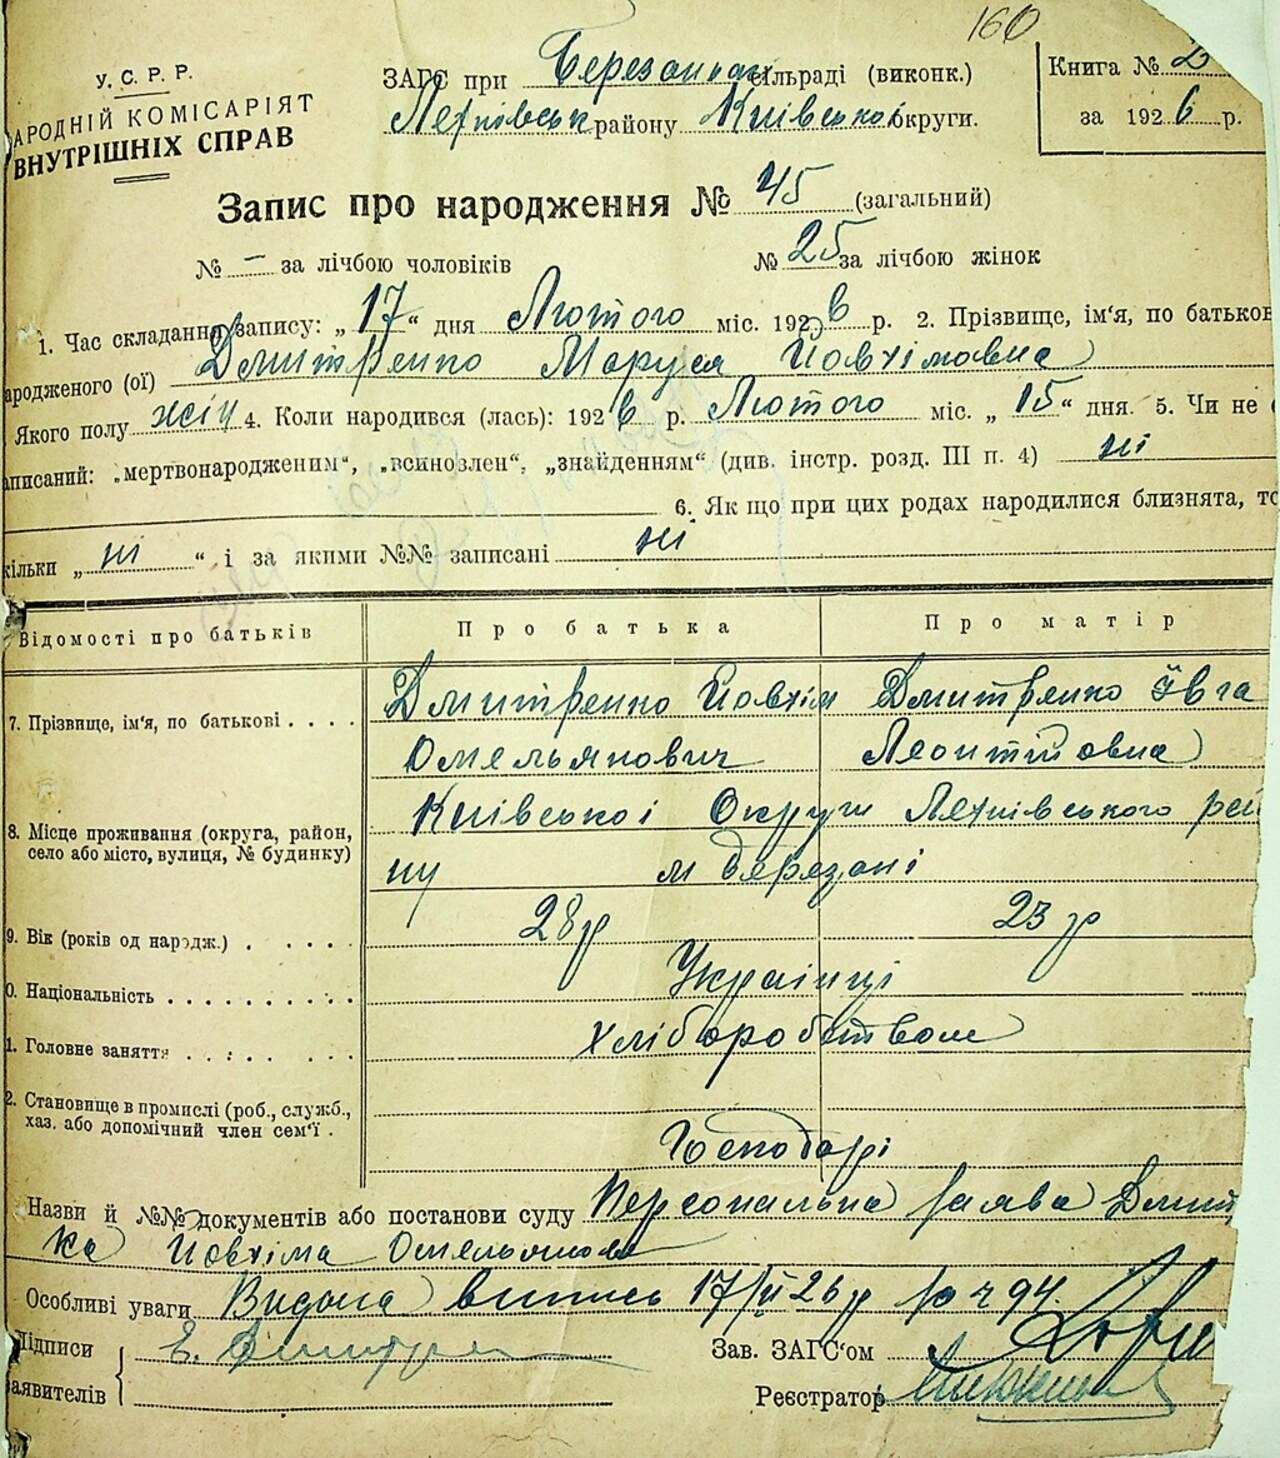 160
У. С. Р. Р.
АРОДНІЙ КОМІСАРІЯТ
ВНУТРІШНІХ СПРАВ
ЗАГС при Березанськ сільраді (виконк.)
району Київської округи.
Книга № 2
за 1926 р.
Запис про народження № 45 (загальний)
№ – за лічбою чоловіків № 25 за лічбою жінок
1. Час складання запису: „17“ дня Лютого міс. 1926 р. 2. Прізвище, ім'я, по батьков
ародженого (ої) Дмитренко Маруся Йовхімовна
Якого полу жін 4. Коли народився (лась): 1926 р. Лютого міс. „15“ дня. 5. Чи не є
аписаний: „мертвонародженим“, „всиновлен“, „знайденням“ (див. інстр. розд. III п. 4) ні
6. Як що при цих родах народилися близнята, то
кільки „ні“ і за якими №№ записані ні
Відомості про батьків Про батька Про матір
7. Прізвище, ім'я, по батькові . . . . Дмитренко Йовхім Дмитренко Ївга
Омельянович Леонтійовна
8. Місце проживання (округа, район, село або місто, вулиця, № будинку) Київської Округи рай
ну м Березані
9. Вік (років од народж.) . . . . . 28 р 23 р
0. Національність . . . . . . . . . . Українці
1. Головне заняття . . . : . . . . . хліборобством
2. Становище в промислі (роб., служб.,
хаз. або допомічний член сем'ї . Господарі
Назви й №№ документів або постанови суду Персональна заява Дмит
ка Йовхіма Омельянов
Особливі уваги Видана випись 17/II 26 р 94.
Підписи Е. Зав. ЗАГС'ом
аявителів Реєстратор